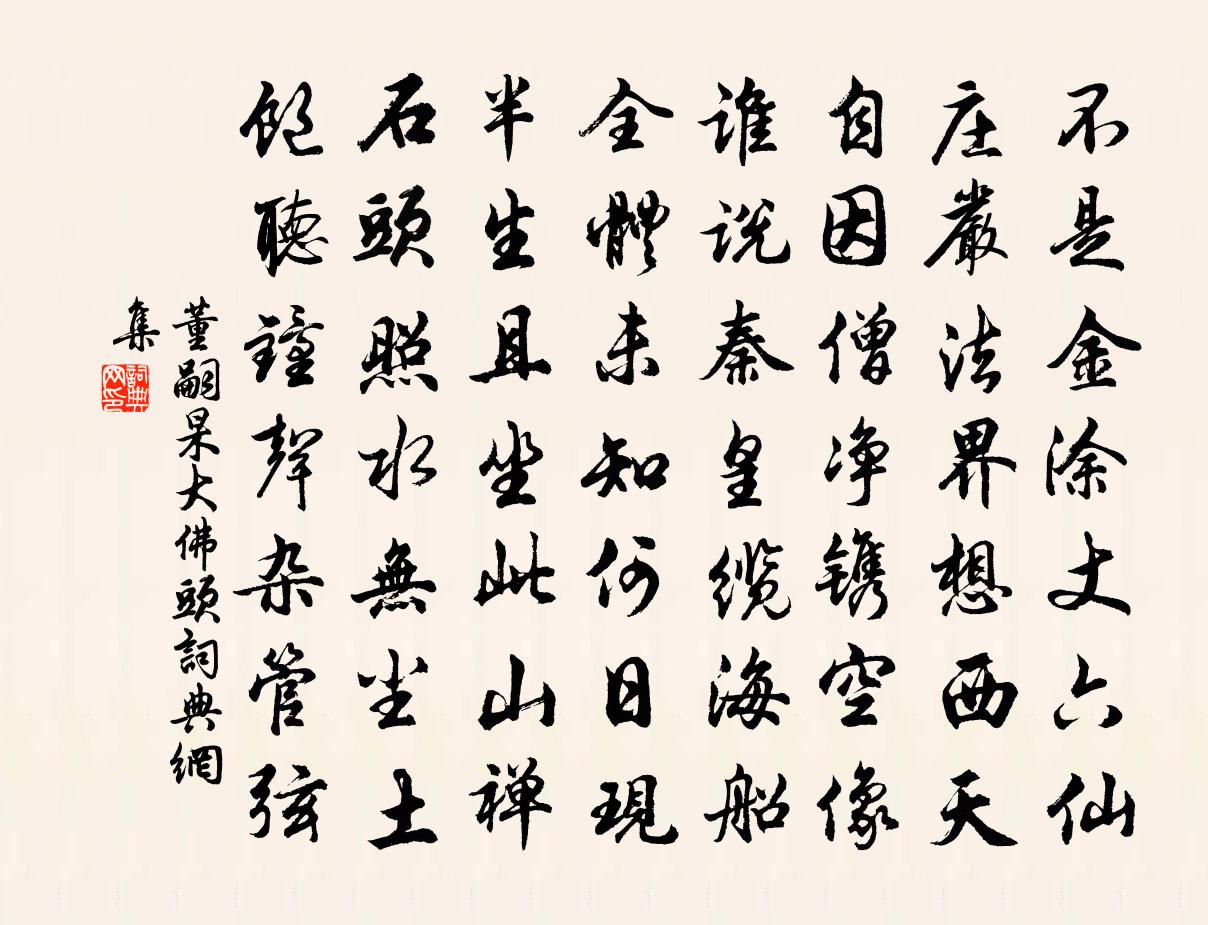 不是金涂丈六仙
庄嚴法界想西天
自因僧净镌空像
谁说秦皇缆海船
全體未知何日現
半生且坐此山禅
石頭照水無尘土
饱聽鐘聲杂管弦
董嗣杲大佛頭詞典網
集
詞典
网印